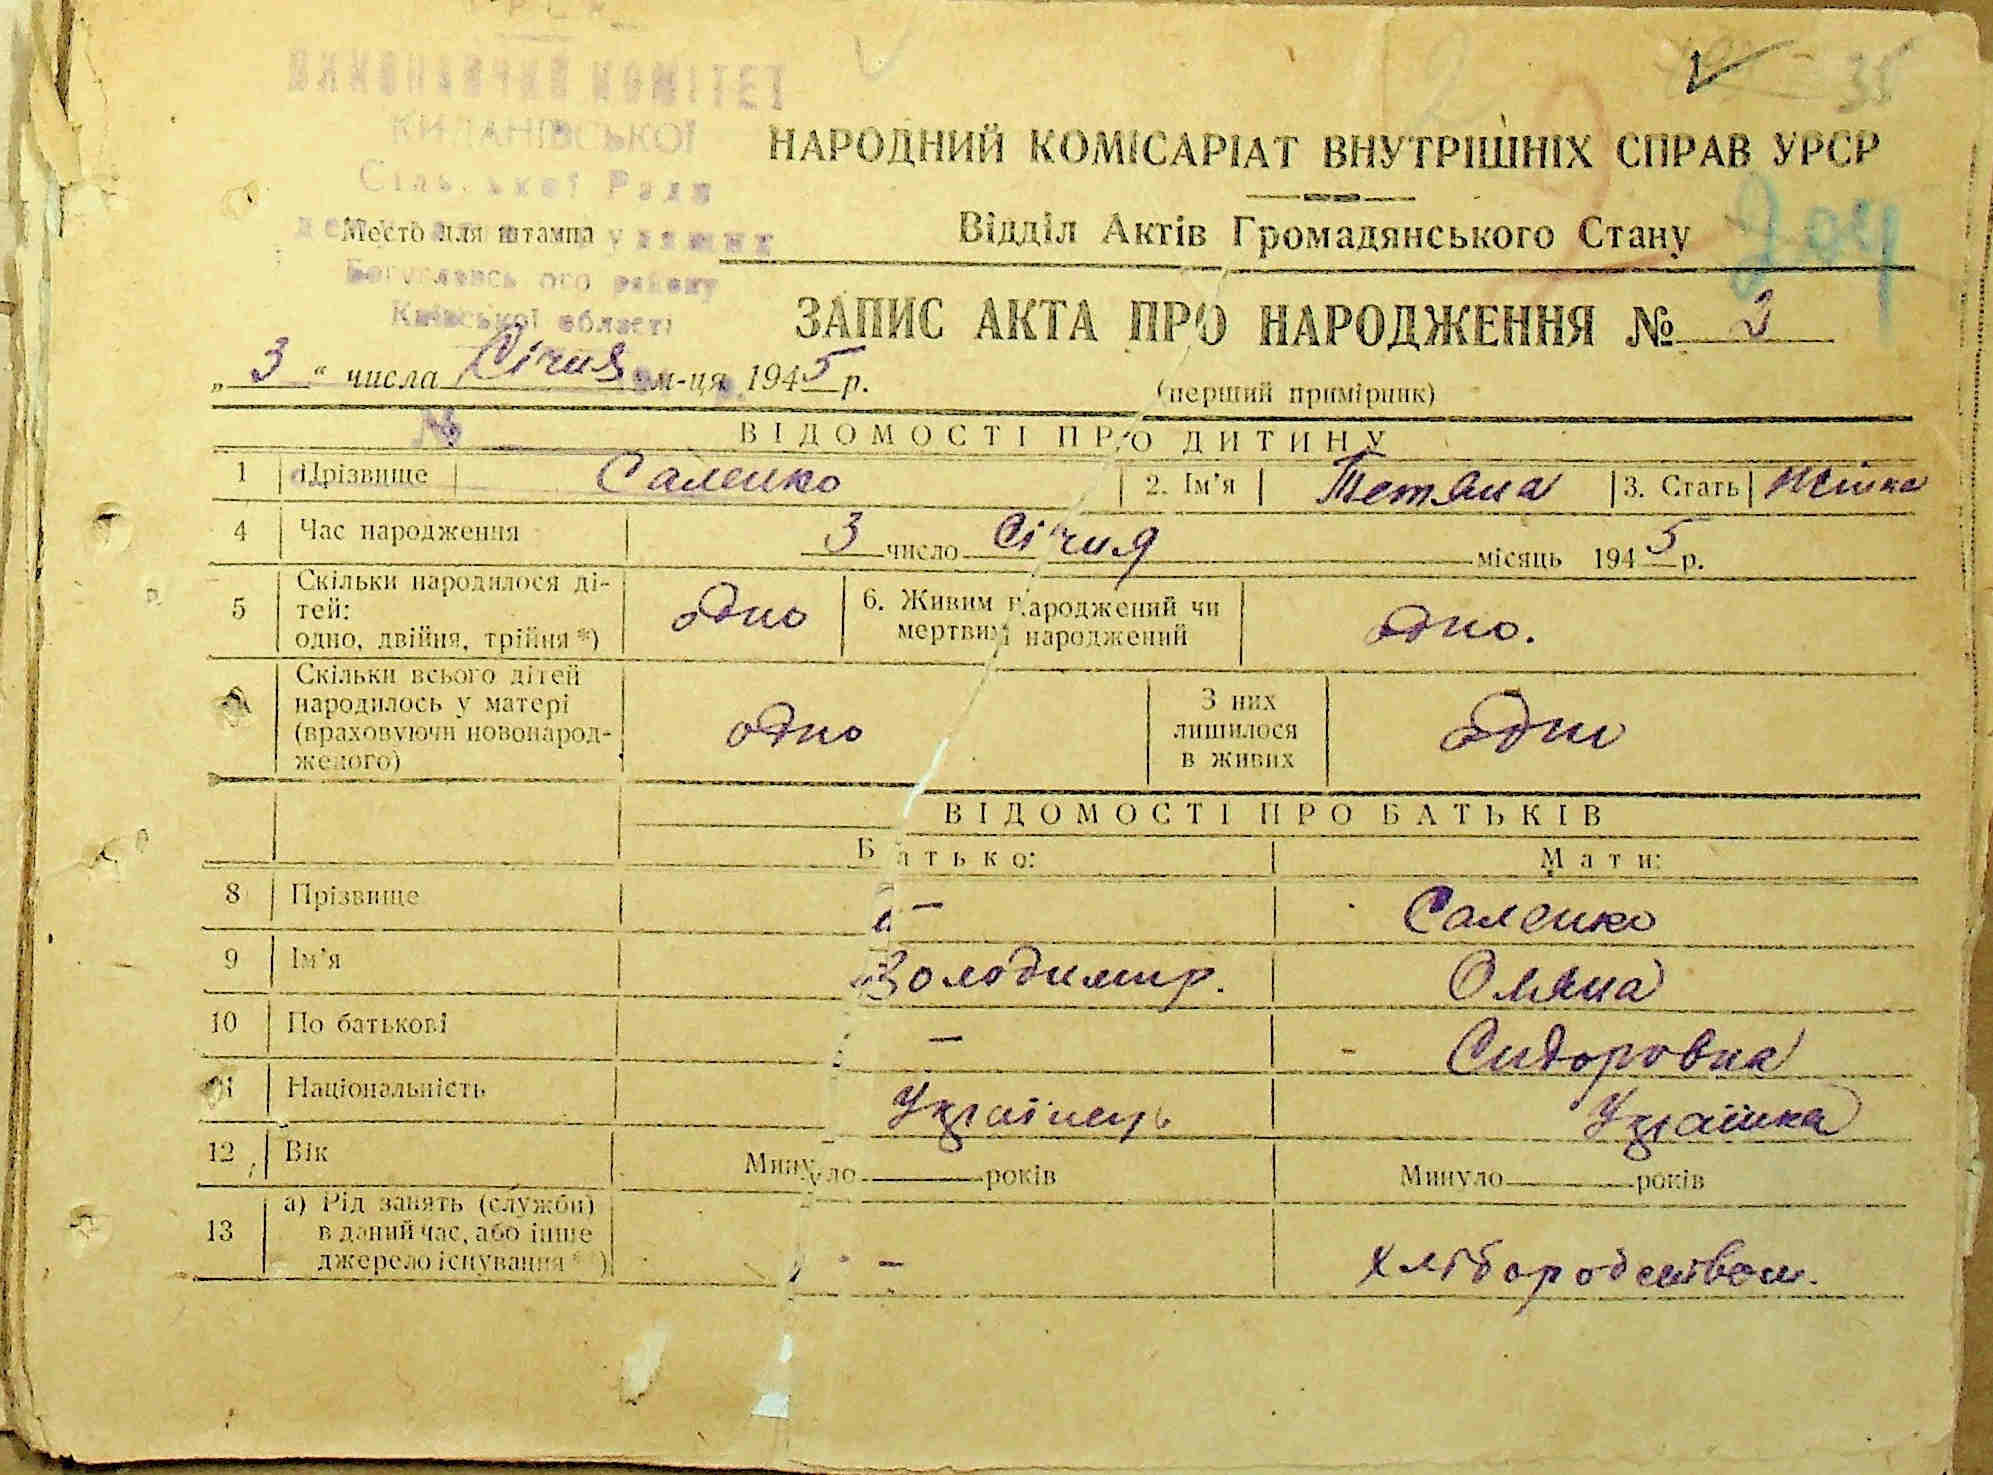 ВИКОНАВЧИЙ КОМІТЕТ
Сільської Ради
Место для штампа
Богуславського району
Київської області
35
НАРОДНИЙ КОМІСАРІАТ ВНУТРІШНІХ СПРАВ УРСР
Відділ Актів Громадянського Стану
ЗАПИС АКТА ПРО НАРОДЖЕННЯ № 3
„ 3 “ числа Січня м-ця 1945 р.
(перший примірник)
№
ВІДОМОСТІ ПРО ДИТИНУ
1 Прізвище Саленко 2. Ім'я Тетяна 3. Стать Жінка
4 Час народження 3 число Січня місяць 1945 р.
5 Скільки народилося ді-
тей:
одно, двійня, трійня *) одно
6. Живим народжений чи
мертвим народжений одно.
Скільки всього дітей
народилось у матері
(враховуючи новонарод-
женого) одно
З них
лишилося
в живих одно
ВІДОМОСТІ ПРО БАТЬКІВ
Батько: Мати:
8 Прізвище — Саленко
9 Ім'я Володимир. Оляна
10 По батькові — Сидоровна
11 Національність Українець Українка
12 Вік Минуло — років Минуло — років
13 а) Рід занять (служби)
в даний час, або інше
джерело існування **) — Хліборобством.